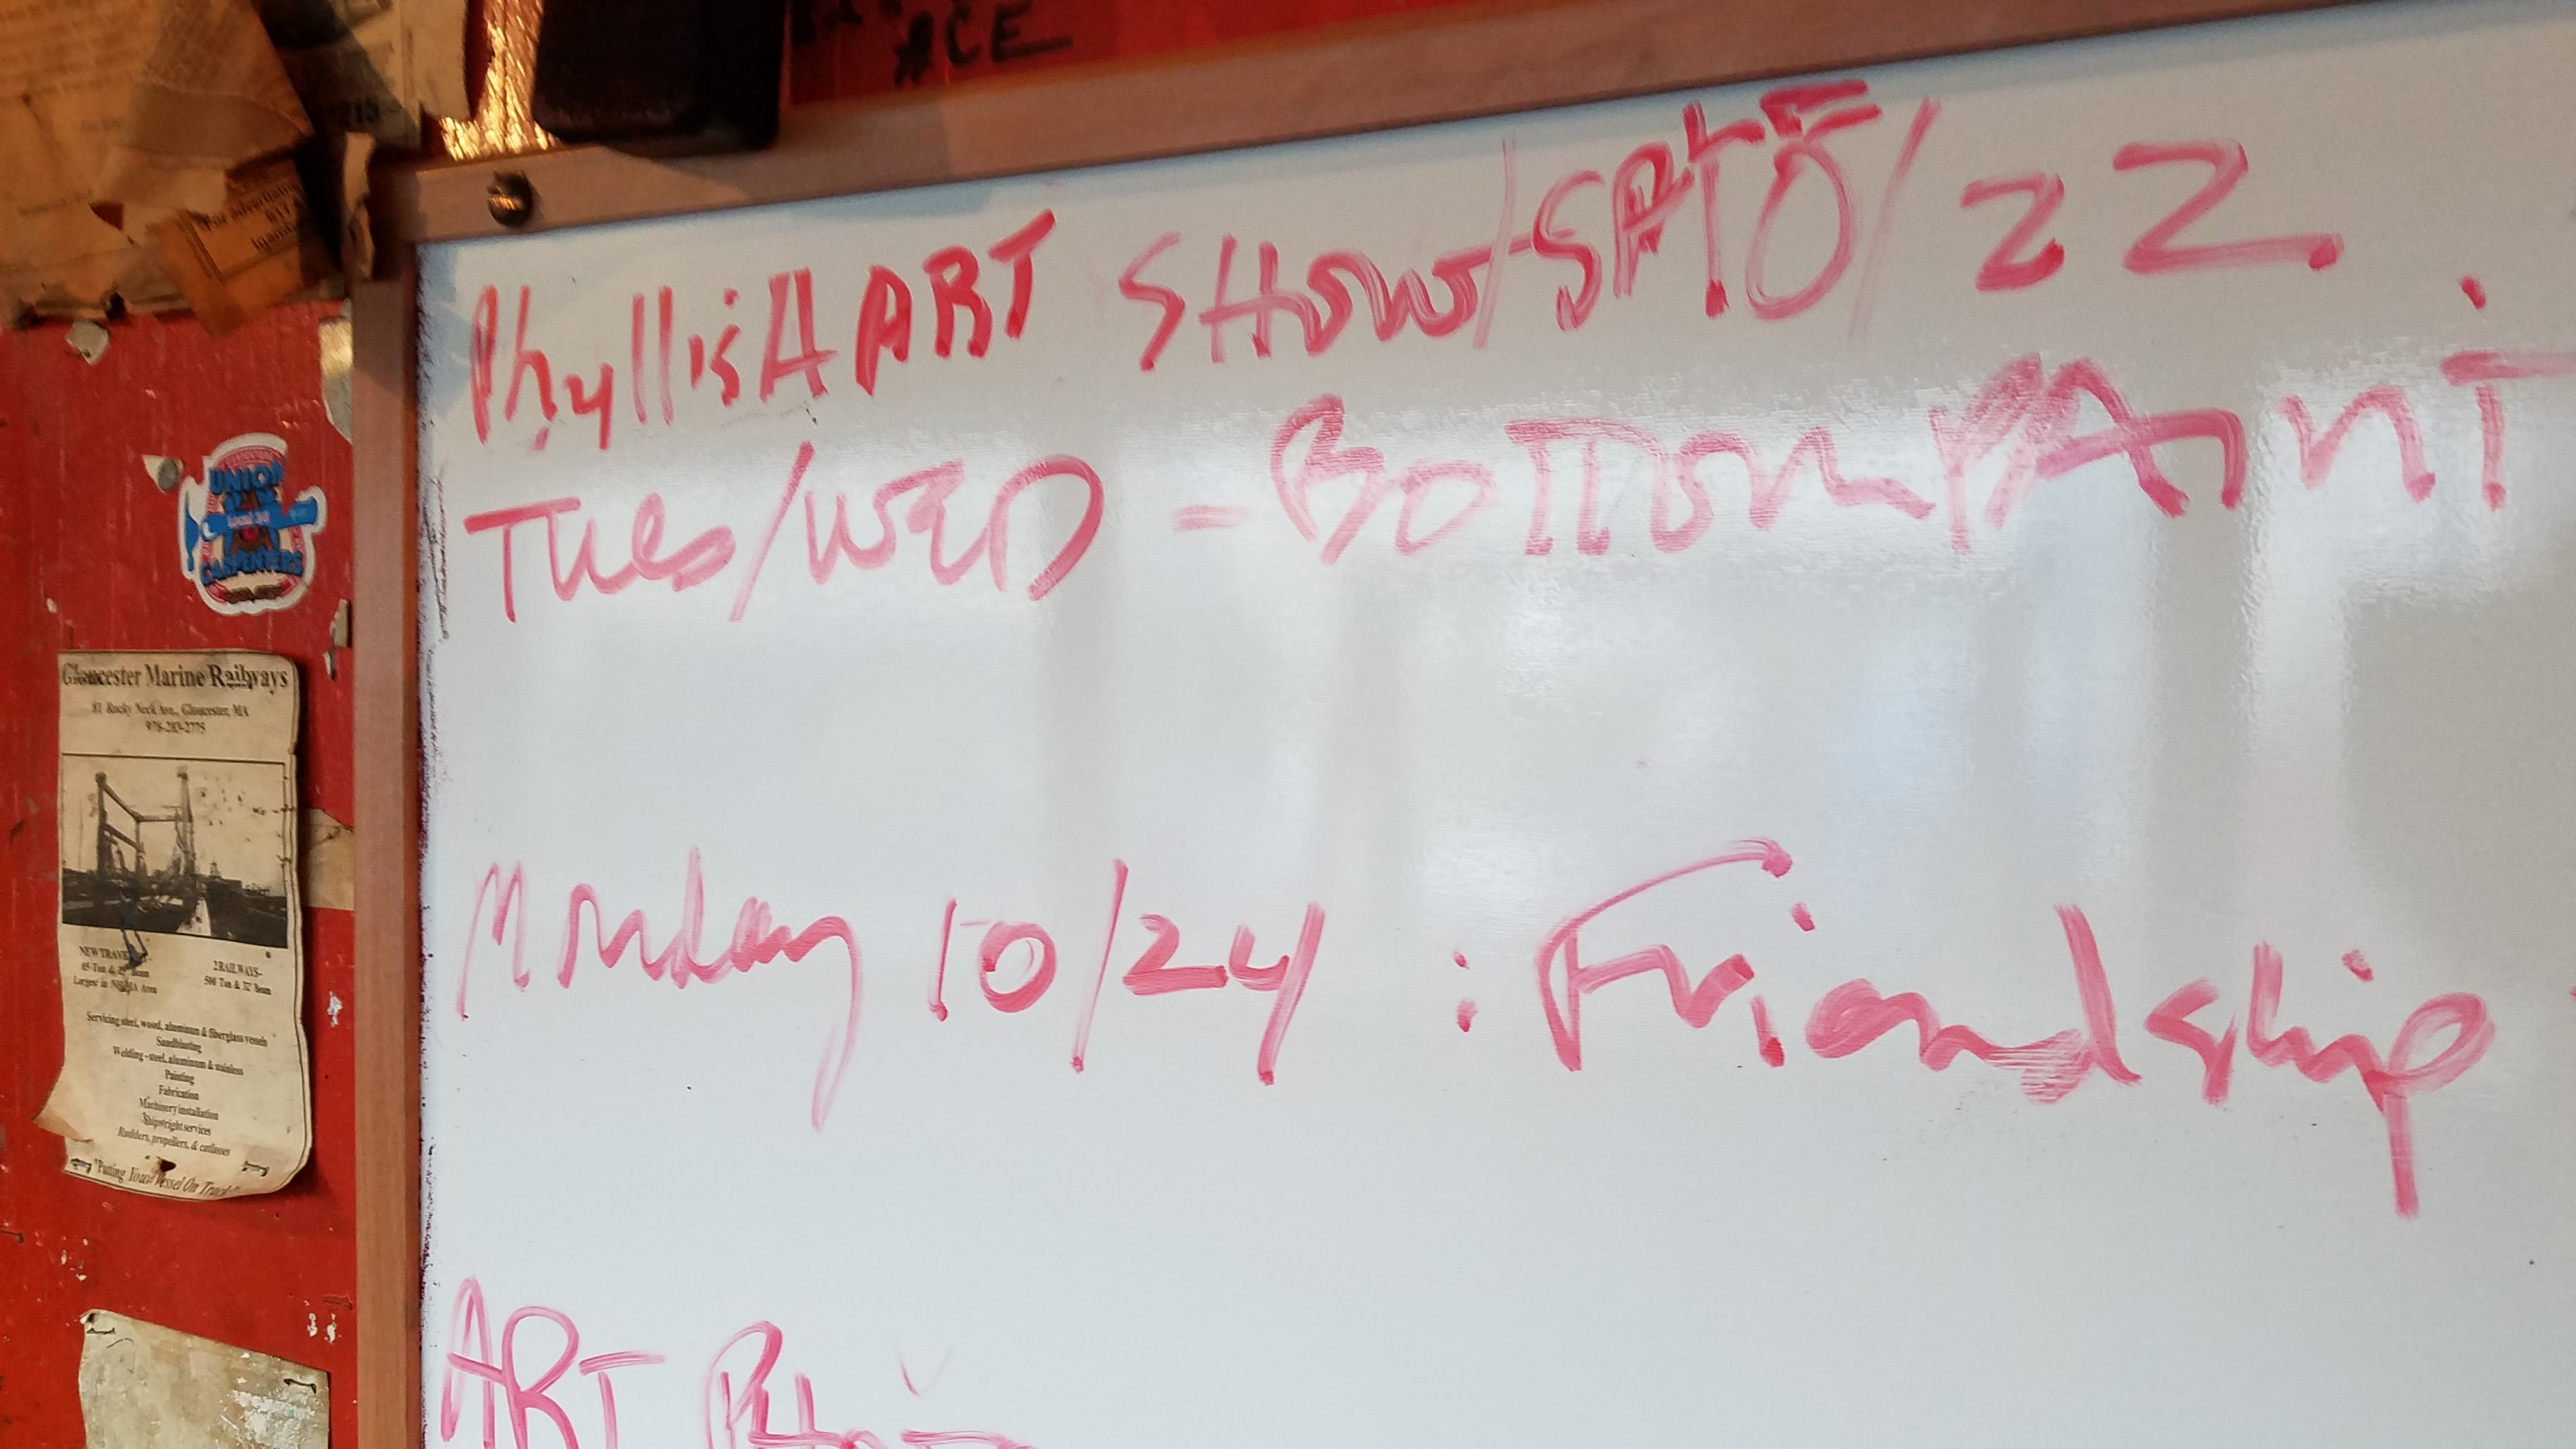 ACE
For advertising
Phyllis A ART SHOW/
/22
TUES/WED - BOTTOM PAINT
Monday 10/24 : Friendship
ART
UNION
CARPENTERS
Gloucester Marine Railways
81 Rocky Neck Ave., Gloucester, MA
978-283-2775
2 RAILWAYS-
500 Ton & 32' Beam
Largest in NH/MA Area
Servicing steel, wood, aluminum & fiberglass vessels
Sandblasting
Welding - steel, aluminum & stainless
Painting
Fabrication
Machinery installation
Shipwright services
Rudders, propellers, & cutlasses
"Putting Your Vessel On Track"